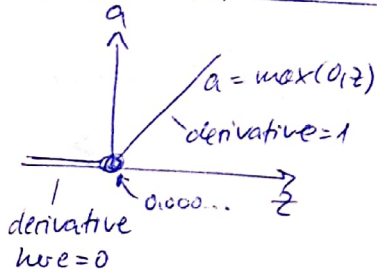 a
a = max(0,z)
derivative=1
0,000...
z
derivative
here=0